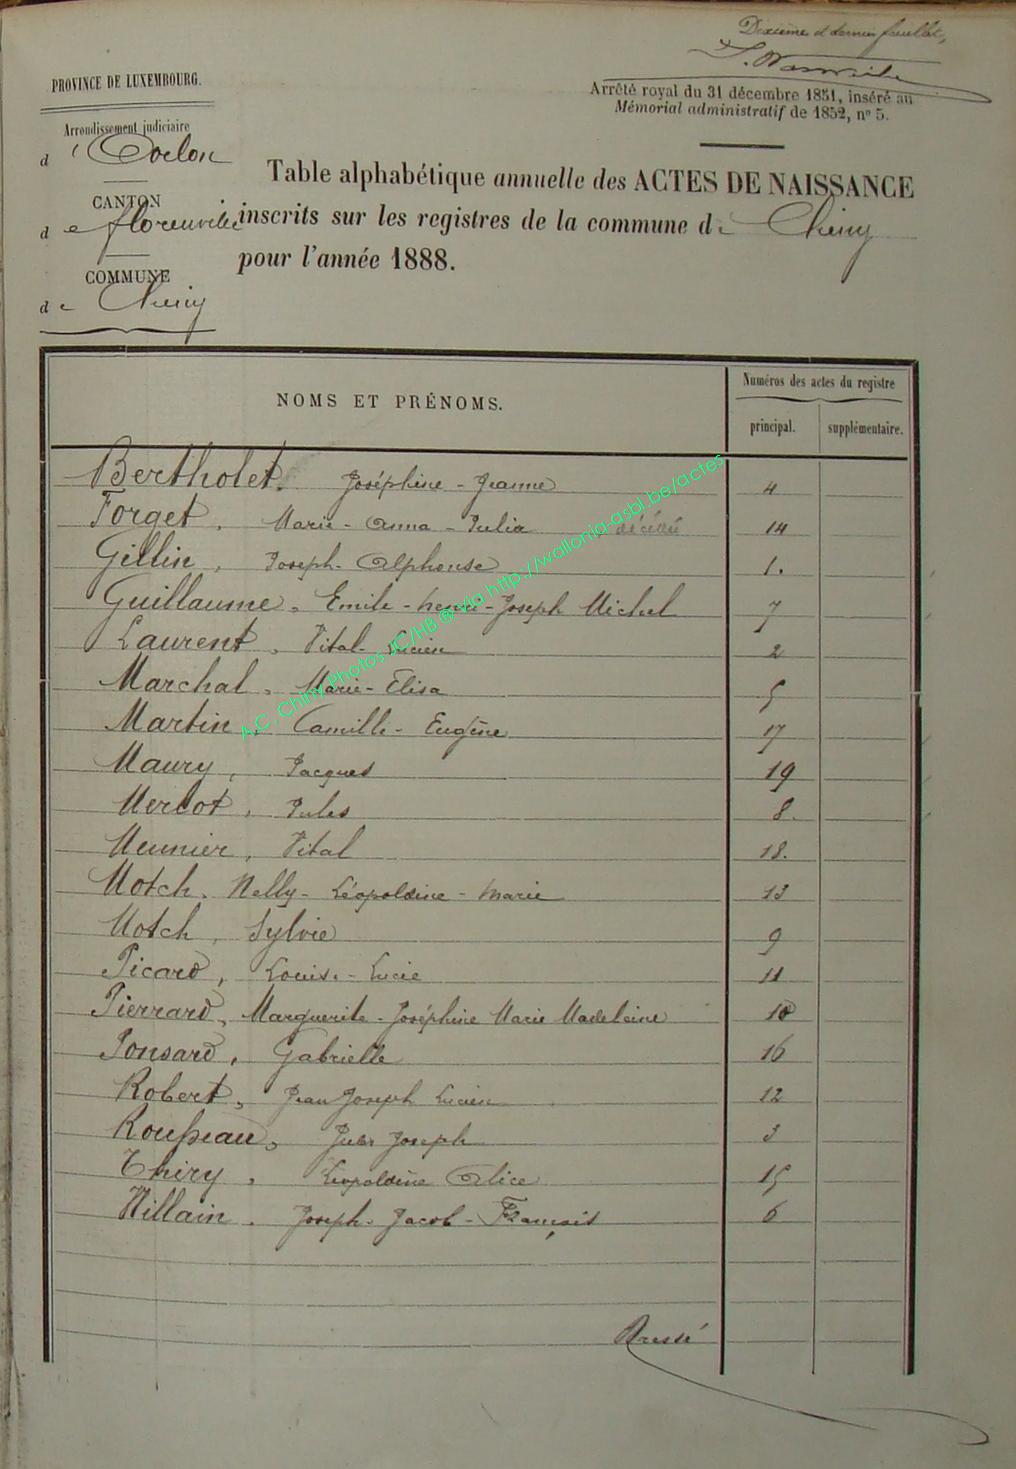 Dixième et dernier feuillet,
PROVINCE DE LUXEMBOURG.
Arrêté royal du 31 décembre 1851, inséré au
Mémorial administratif de 1852, nº 5.
Arrondissement judiciaire
d'Arlon
CANTON
de florenville
COMMUNE
de Chiny
Table alphabétique annuelle des ACTES DE NAISSANCE
inscrits sur les registres de la commune de Chiny
pour l'année 1888.
NOMS ET PRÉNOMS.
Numéros des actes du registre
principal. supplémentaire.
Bertholet. Joséphine - Jeanne 4
Forget, Marie - Anna - Julia décédée 14
Gillin, Joseph - Alphonse 1.
Guillaume, Emile - henri - Joseph Michel 7
Laurent, Vital - Lucien 2
Marchal, Marie - Elisa 5
Martin, Camille - Eugène 17
Maury, Jacques 19
Merlot, Jules 8.
Meunier, Vital 18.
Motch, Nelly - Léopoldine - Marie 13
Motch, Sylvie 9
Picard, Louise - Lucie 11
Pierrard, Marguerite - Joséphine Marie Madeleine 10
Ponsard, Gabrielle 16
Robert, Jean Joseph Lucien 12
Rousseau, Jules Joseph 3
Thiry, Léopoldine Alice 15
Willain, Joseph - Jacob - François 6
Dressé
A.C. Chiny Photos JC/HB ® Via http://wallonia-asbl.be/actes